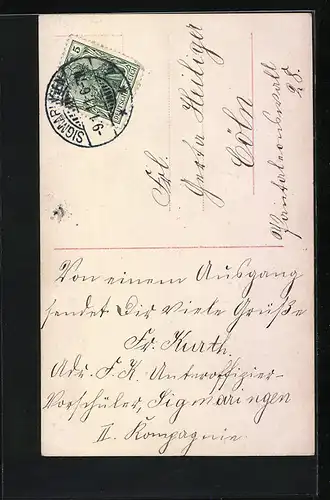 5
SIGMARINGEN
Frl.
Gerta Heiliger
Cöln
Pantaleonswall
28.
Von einem Ausgang
sendet Dir viele Grüße
Fr. Kurth.
Adr. F. K. Unteroffizier-
Vorschüler, Sigmaringen
II. Kompagnie.